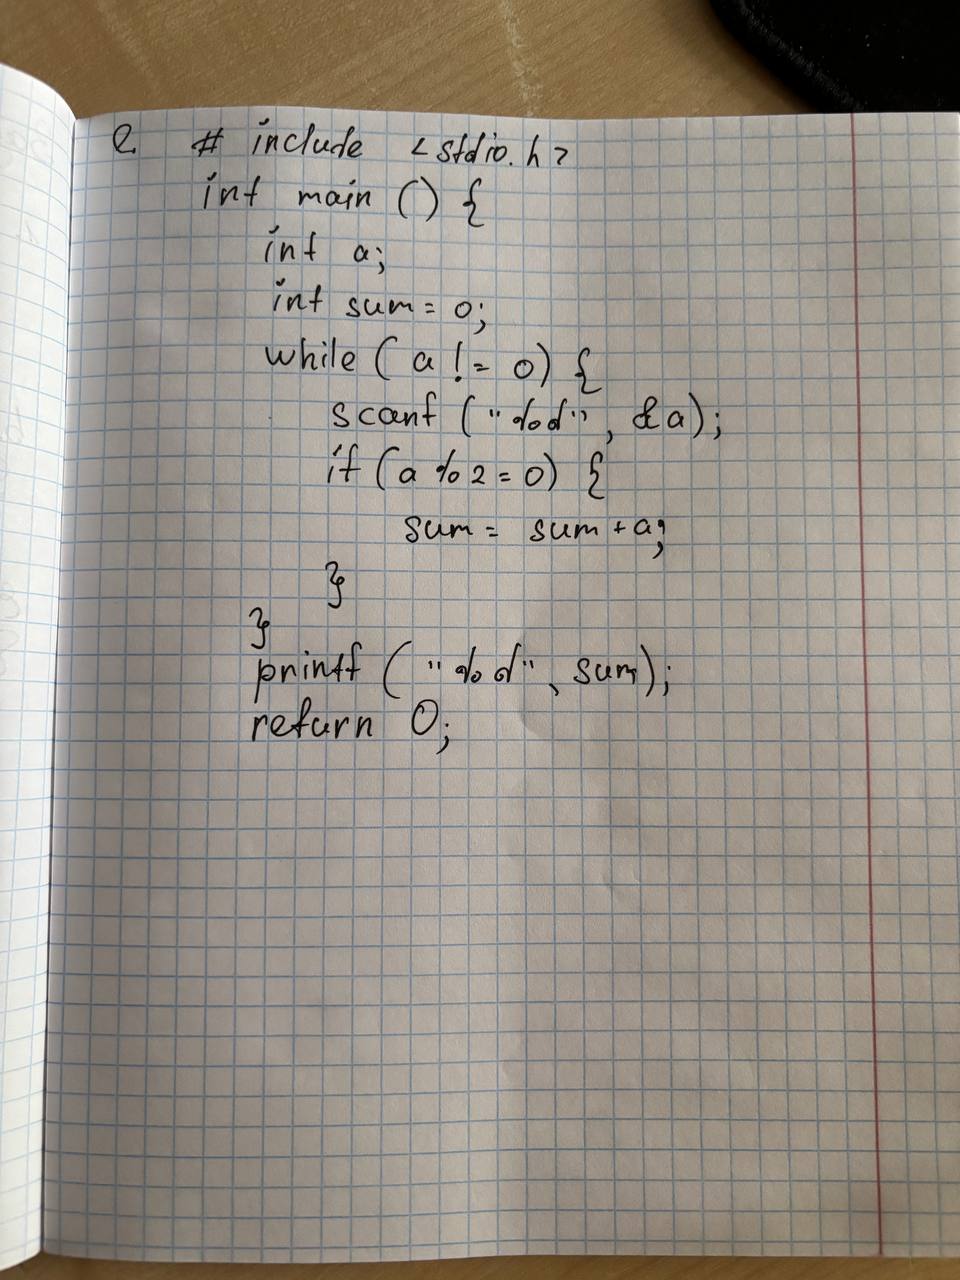 2. # include <stdio.h>
int main () {
int a;
int sum = 0;
while ( a != 0) {
scanf ( "%d" , &a);
if (a % 2 = 0) {
sum = sum + a;
}
}
printf ( "%d" , sum);
return 0;